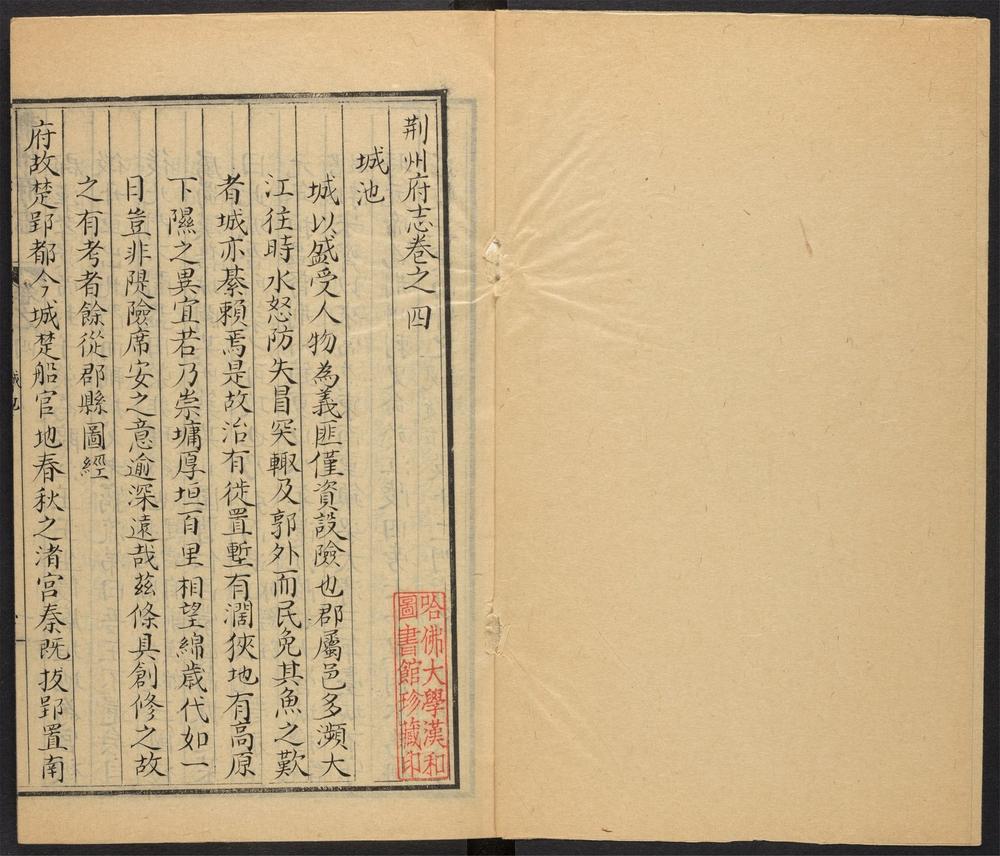 荆州府志卷之四
城池
城以盛受人物為義匪僅資設險也郡屬邑多瀕大
江往時水怒防失冒突輙及郭外而民免其魚之歎
者城亦綦賴焉是故治有徙置塹有濶狹地有高原
下隰之異宜若乃崇墉厚垣百里相望綿歲代如一
日豈非隄險席安之意逾深遠哉茲條具創修之故
之有考者餘從郡縣圖經
府故楚郢都今城楚船官地春秋之渚宮秦既拔郢置南
哈佛大學漢和
圖書館珍藏印